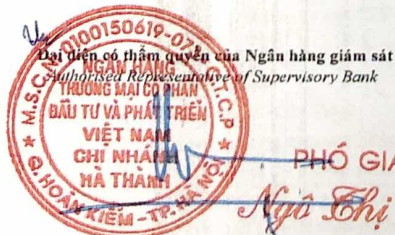 Đại diện có thẩm quyền của Ngân hàng giám sát
Authorised Representative of Supervisory Bank
M.S.C.N: 0100150619-073
C.T.C.P
NGÂN HÀNG
THƯƠNG MẠI CỔ PHẦN
ĐẦU TƯ VÀ PHÁT TRIỂN
VIỆT NAM
CHI NHÁNH
HÀ THÀNH
Q. HOÀN KIẾM - TP. HÀ NỘI
PHÓ GIÁ
Ngô Thị